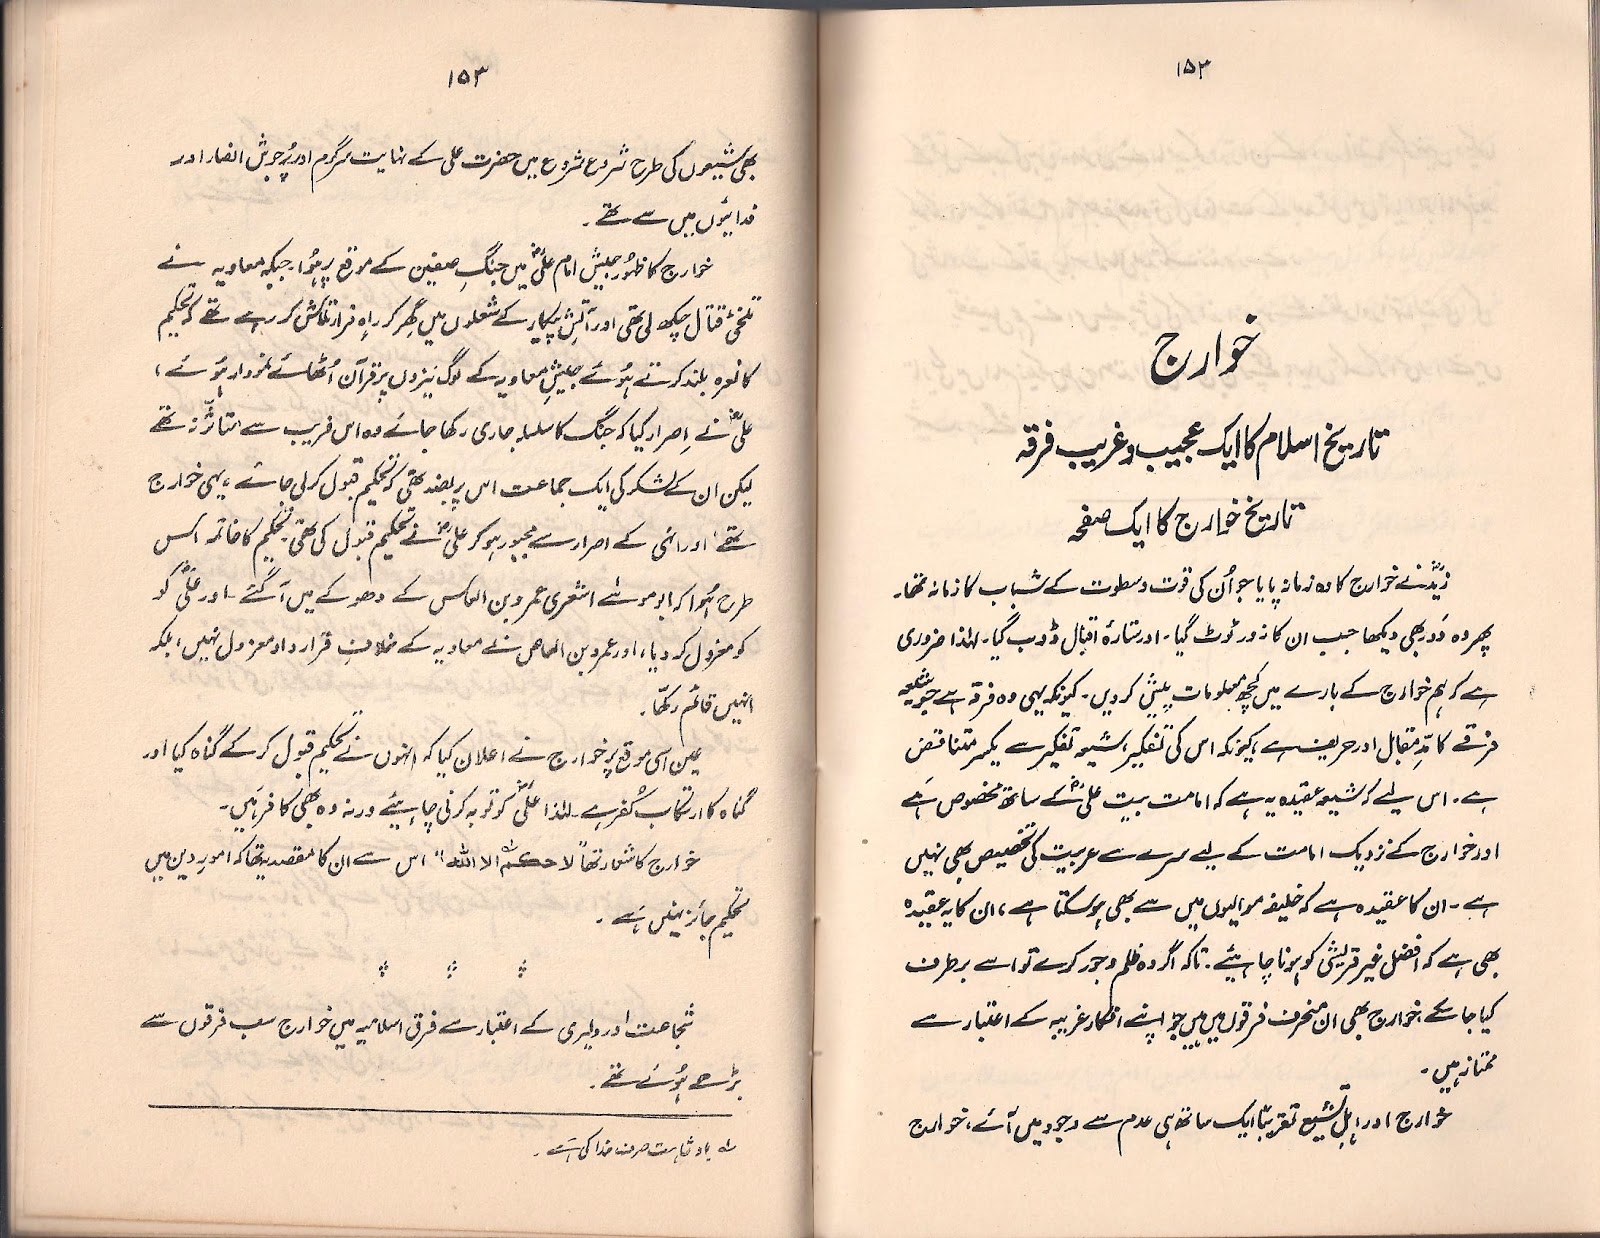 ۱۵۲
خوارج
تاریخ اسلام کا ایک عجیب و غریب فرقہ
تاریخ خوارج کا ایک صفحہ
زیدؓ نے خوارج کا وہ زمانہ پایا جو اُن کی قوت و سطوت کے شباب کا زمانہ تھا۔
پھر وہ دَور بھی دیکھا جب ان کا زور ٹوٹ گیا۔ اور ستارۂ اقبال ڈوب گیا۔ لہٰذا ضروری
ہے کہ ہم خوارج کے بارے میں کچھ معلومات پیش کر دیں۔ کیونکہ یہی وہ فرقہ ہے جو شیعہ
فرقے کا مدِّ مقابل اور حریف ہے، کیونکہ اس کی تفکیر، شیعہ تفکیر سے یکسر متناقض
ہے۔ اس لیے کہ شیعہ عقیدہ یہ ہے کہ امامت بیت علیؓ کے ساتھ مخصوص ہے
اور خوارج کے نزدیک امامت کے لیے سرے سے عربیت کی تخصیص بھی نہیں
ہے۔ ان کا عقیدہ ہے کہ خلیفہ موالیوں میں سے بھی ہو سکتا ہے، ان کا یہ عقیدہ
بھی ہے کہ افضل غیر قریشی کو ہونا چاہیئے۔ تاکہ اگر وہ ظلم و جور کرے تو اسے برطرف
کیا جا سکے، خوارج بھی ان منحرف فرقوں میں ہیں جو اپنے افکار غریبہ کے اعتبار سے
ممتاز ہیں۔
خوارج اور اہل تشیع تقریباً ایک ساتھ ہی عدم سے وجود میں آئے، خوارج
۱۵۳
بھی شیعوں کی طرح شروع شروع میں حضرت علی کے نہایت سرگرم اور پُرجوش انصار اور
فدائیوں میں سے تھے۔
خوارج کا ظہور جیش امام علیؓ میں جنگِ صفین کے موقع پر ہُوا۔ جبکہ معاویہ نے
تلخئ قتال چکھ لی تھی اور آتشِ پیکار کے شعلوں میں گھِر کر راہِ فرار تلاش کر رہے تھے کہ تحکیم
کا نعرہ بلند کرتے ہُوئے جیشِ معاویہ کے لوگ نیزوں پر قرآن اُٹھائے نمودار ہُوئے،
علیؓ نے اِصرار کیا کہ جنگ کا سلسلہ جاری رکھا جائے وہ اس فریب سے متاثّر نہ تھے
لیکن ان کے لشکر کی ایک جماعت اس پر بضد تھی کہ تحکیم قبول کر لی جائے، یہی خوارج
تھے، اور انہی کے اصرار سے مجبور ہو کر علیؓ نے تحکیم قبول کی تھی، تحکیم کا خاتمہ اس
طرح ہُوا کہ ابو موسےٰ اشعری عمرو بن العاص کے دھوکے میں آ گئے۔ اور علیؓ کو
کو معزول کر دیا، اور عمرو بن العاص نے معاویہ کے خلافِ قرارداد معزول نہیں، بلکہ
انہیں قائم رکھّا۔
عین اسی موقع پر خوارج نے اعلان کیا کہ انہوں نے تحکیم قبول کر کے گناہ کیا اور
گناہ کا ارتکاب کُفر ہے۔ لہٰذا علیؓ کو توبہ کرنی چاہیئے ورنہ وہ بھی کافر ہیں۔
خوارج کا شعار تھا "لا حکم الا اللہ" اس سے ان کا مقصد یہ تھا کہ امورِ دین میں
تحکیم جائز نہیں ہے۔
شجاعت اور دلیری کے اعتبار سے فرق اسلامیہ میں خوارج سب فرقوں سے
بڑھے ہُوئے تھے۔
لہ بادشاہت صرف خدا کی ہے۔